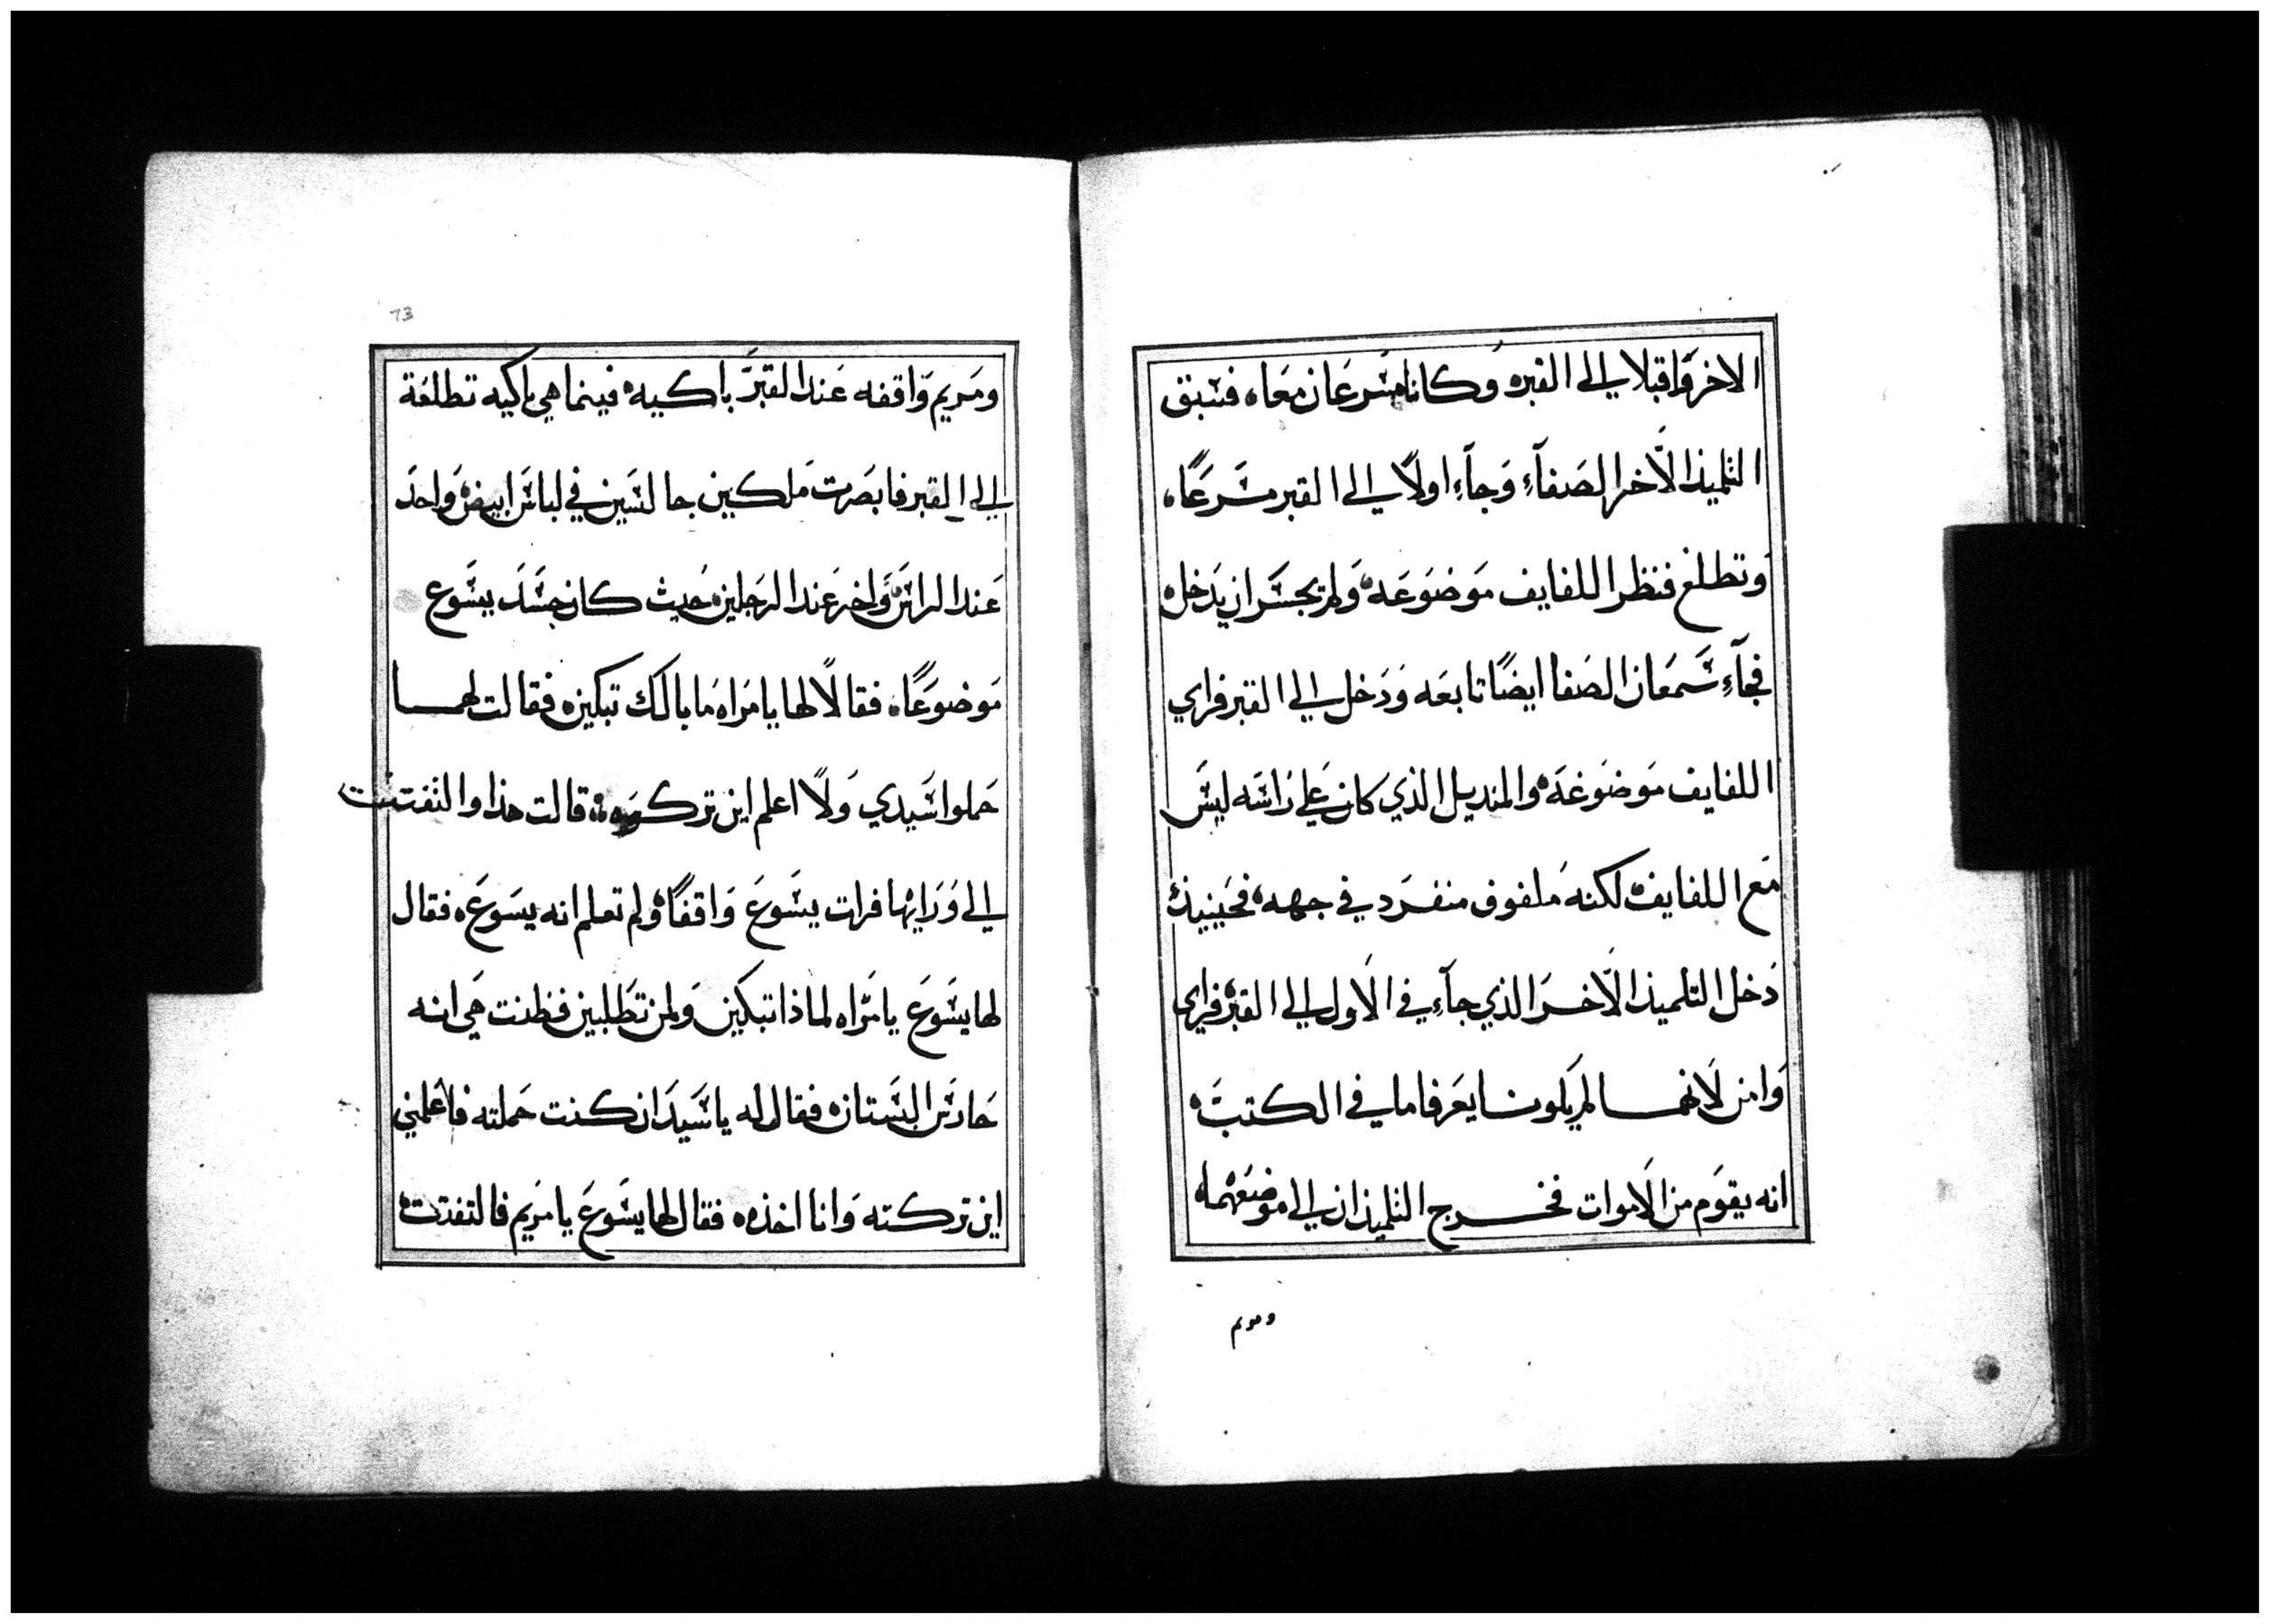 الاخر واقبلا الي القبر ه وكانا مسرعان معا ه فسبق
التلميذ الاخر الصفآء وجآء اولاً الي القبر مسرعًا ه
وتطلع فنظر اللفايف موضوعه ه ولم يجسر ان يدخل ه
فجآء سمعان الصفا ايضًا تابعه ودخل الي القبر فراي
اللفايف موضوعه ه والمنديل الذي كان علي راسه ليس
مع اللفايف ه لكنه ملفوف منفرد في جهه ه فحينيذ
دخل التلميذ الاخر الذي جآء في الاول الي القبر ه فراي
وامن لانهما لم يكونا يعرفا ما في الكتب ه
انه يقوم من الاموات فخرج التلميذان الي موضعهما ه
ومريم
73
ومريم واقفه عند القبر باكيه ه فبينما هي باكيه تطلعة
الي القبر فابصرت ملكين جالسين في لباس ابيض ه واحد
عند الراس ه واخر عند الرجلين ه حيث كان جسد يسوع
موضوعًا ه فقالا لها يا مراه ما بالك تبكين ه فقالت لهما
حملوا سيدي ولا اعلم اين تركوه ه قالت هذا والتفتت
الي ورايها فرات يسوع واقفًا ه ولم تعلم انه يسوع ه فقال
لها يسوع يا مراه لماذا تبكين ولمن تطلبين فظنت هي انه
حارس البستان ه فقال له يا سيد ان كنت حملته فاعلمني
اين تركته وانا اخذه ه فقال لها يسوع يا مريم فالتفتت ه